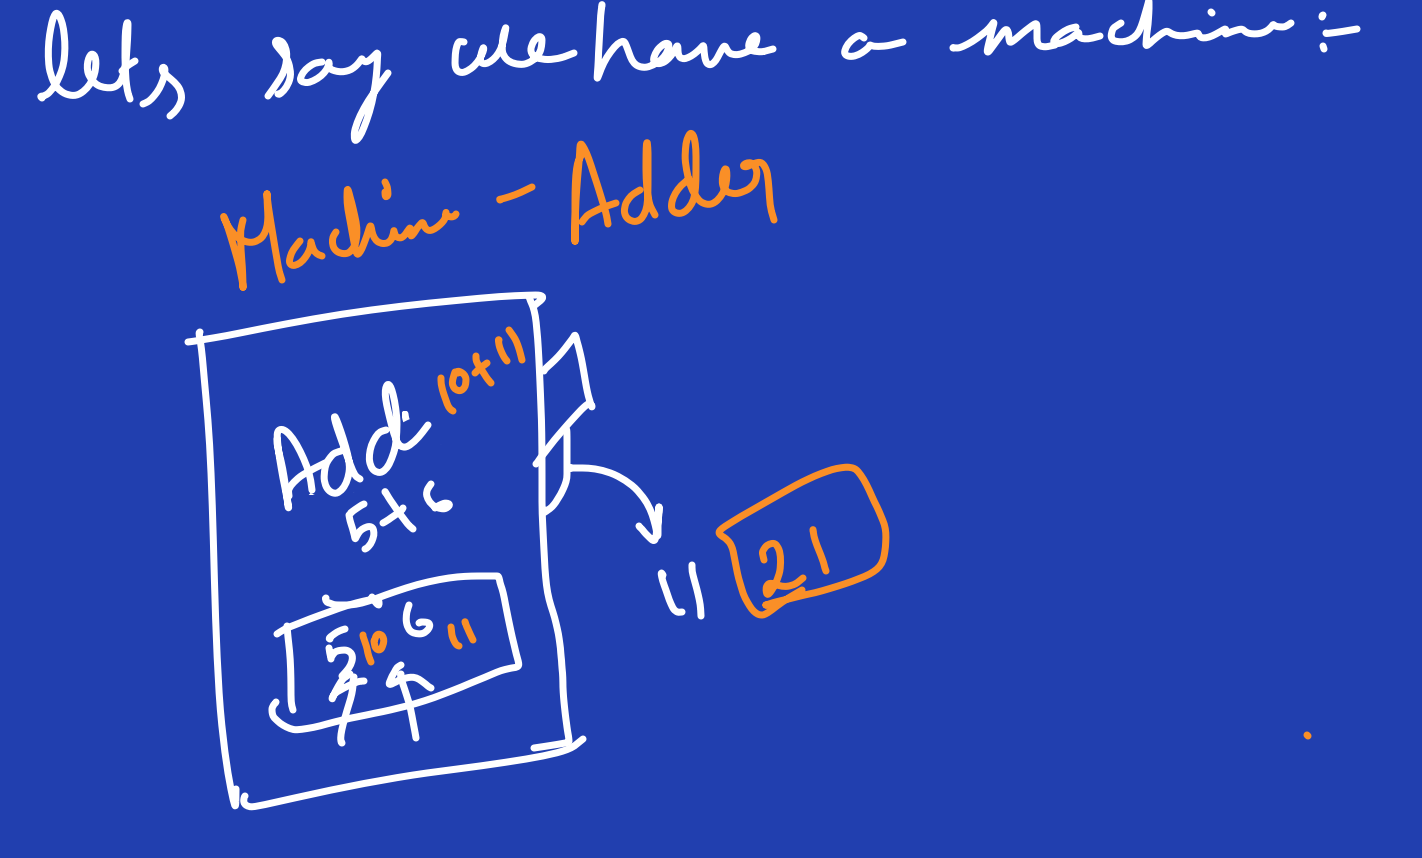 lets say we have a machine:-
Machine - Adder
Add 10+11
5+6
11 21
5 10 6 11